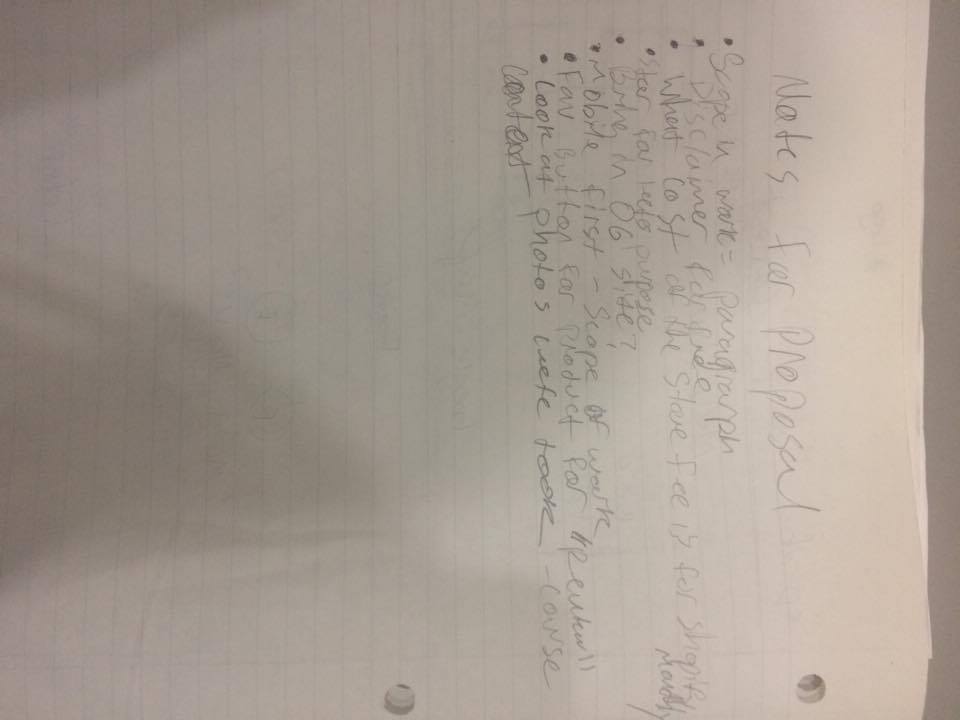 Notes for proposal
• Scope u work = paragraph
• Disclaimer for
• What cost of the Store Fee is for shopify Monthly
• Star for
• Bring in OG site?
• Mobile first - Scope of work
• Fav Button for Product for
• Look at photos were took - course
content